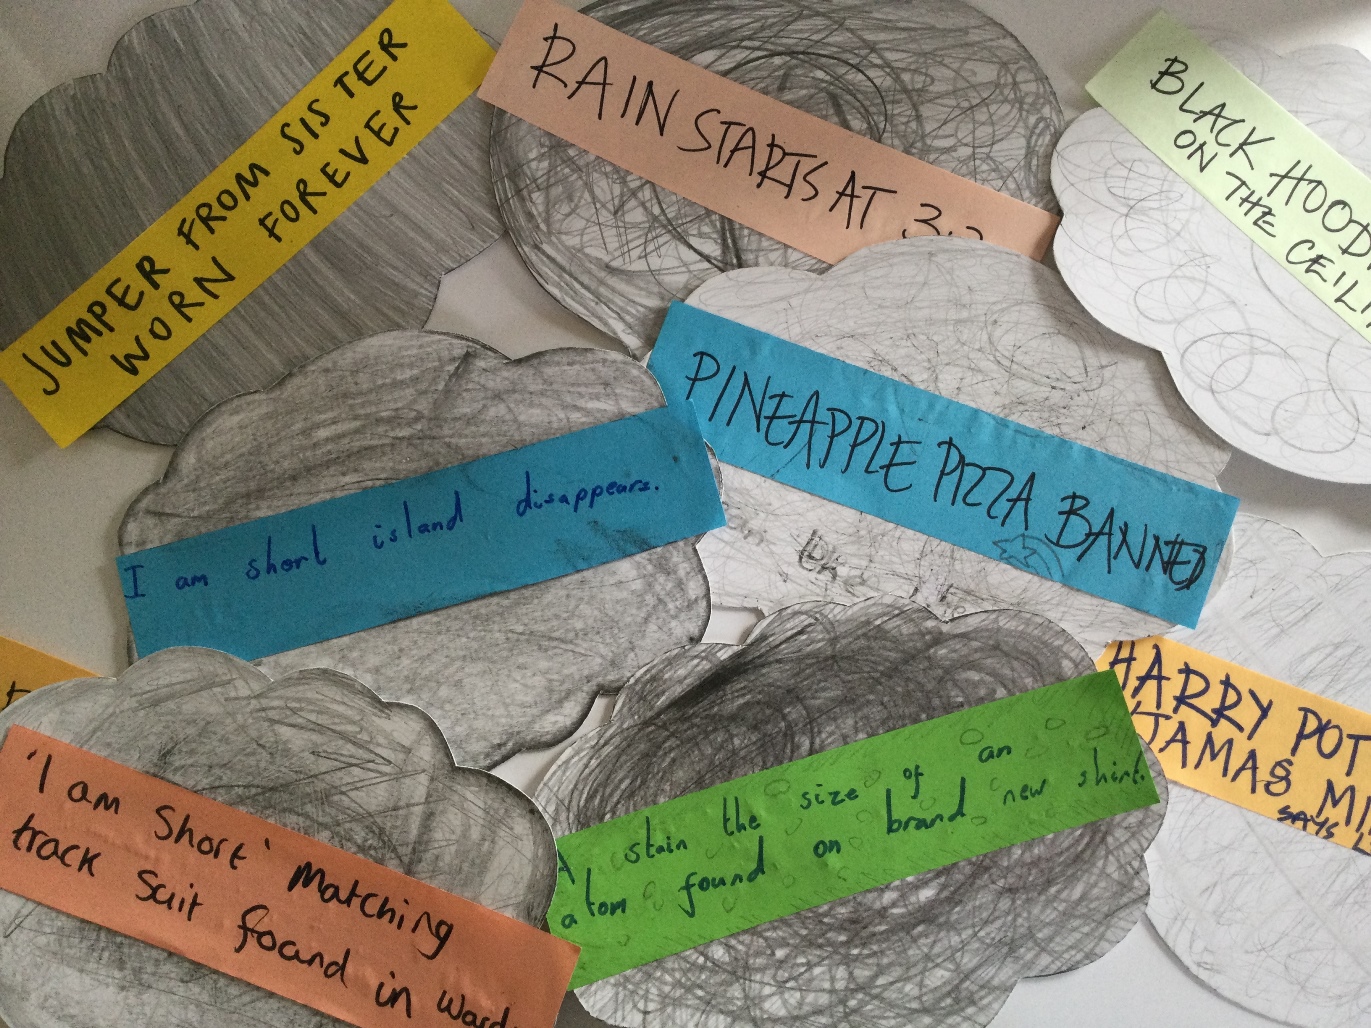 JUMPER FROM SISTER
WORN FOREVER
RAIN STARTS AT
BLACK
ON THE
PINEAPPLE PIZZA BANNED
I am short island disappears.
HARRY
SAYS
'I am Short' Matching
track Suit found in
A stain the size of an
atom found on brand new shirt.